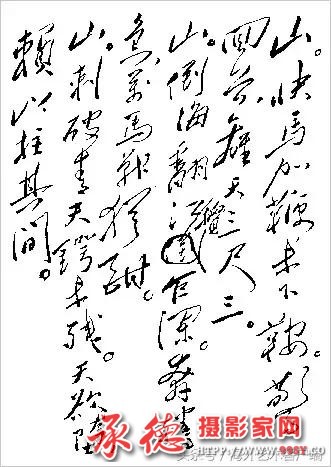 山。快馬加鞭未下鞍。驚
回首，離天三尺三。
山。倒海翻江捲巨瀾。奔騰
急，萬馬戰猶酣。
山。刺破青天鍔未殘。天欲墮
賴以拄其間。
承德摄影家网